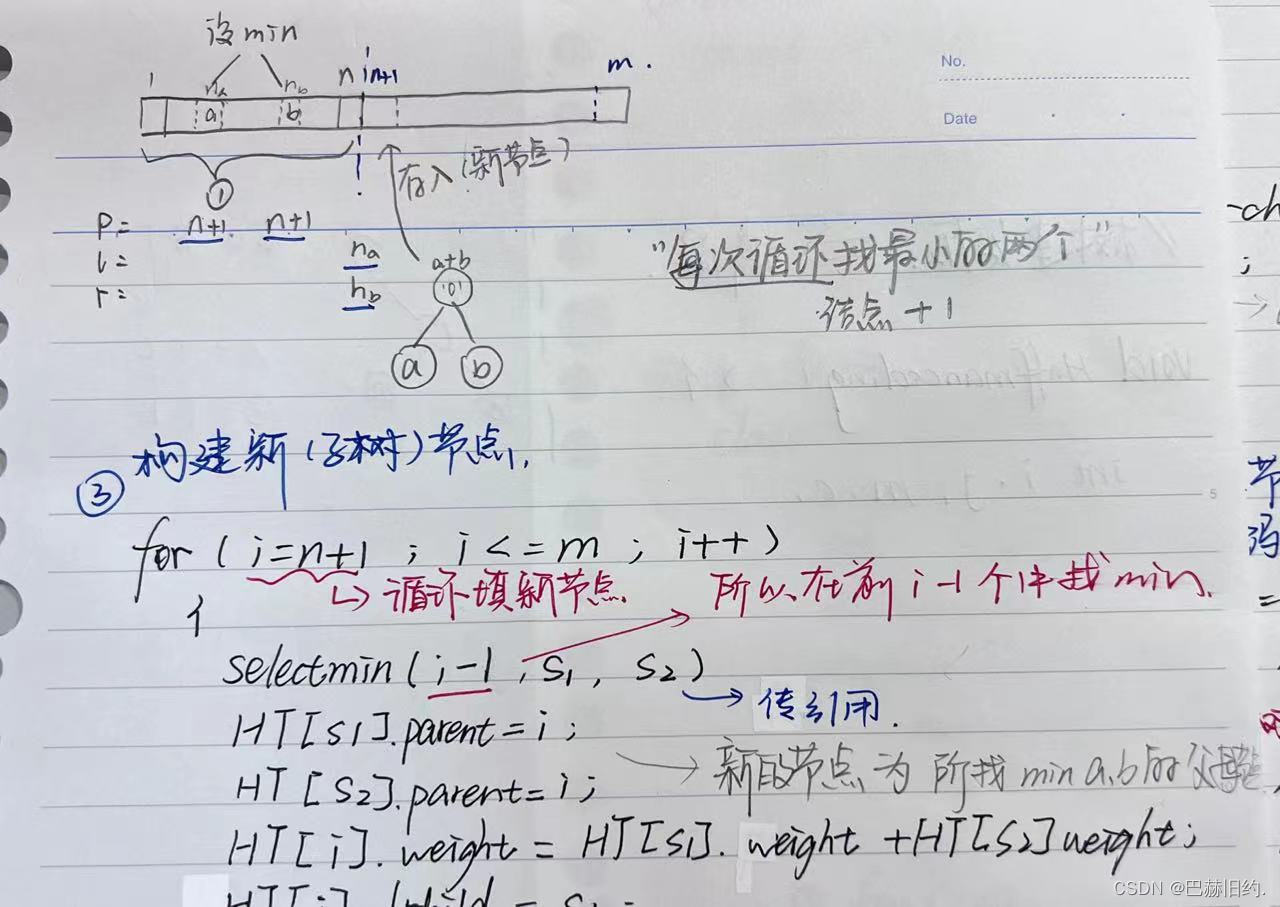 设min
1 na nb n i n+1 m.
a b
① 存入(新节点)
No.
Date
P= n+1 n+1
l= na
r= nb
a+b
"0"
a b
"每次循环找最小的两个"
结点+1
③ 构建新(子树)节点,
for ( i=n+1 ; i<=m ; i++ )
↳ 循环填新节点.
所以在前i-1个中找min.
{
selectmin ( i-1 , S1 , S2 )
→ 传引用.
HT[S1].parent = i ;
→ 新的节点为所找min a,b的父
HT[S2].parent = i ;
HT[i].weight = HT[S1].weight + HT[S2]weight ;
5
-ch
;
节
冯
=
CSDN @巴赫旧约.